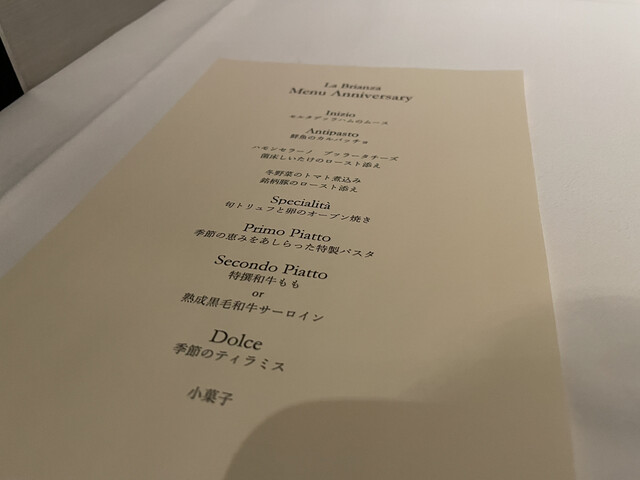 La Brianza
Menu Anniversary
Inizio
モルタデッラハムのムース
Antipasto
鮮魚のカルパッチョ
ハモンセラーノ ブッラータチーズ
菌床しいたけのロースト添え
冬野菜のトマト煮込み
銘柄豚のロースト添え
Specialità
旬トリュフと卵のオーブン焼き
Primo Piatto
季節の恵みをあしらった特製パスタ
Secondo Piatto
特撰和牛もも
or
熟成黒毛和牛サーロイン
Dolce
季節のティラミス
小菓子